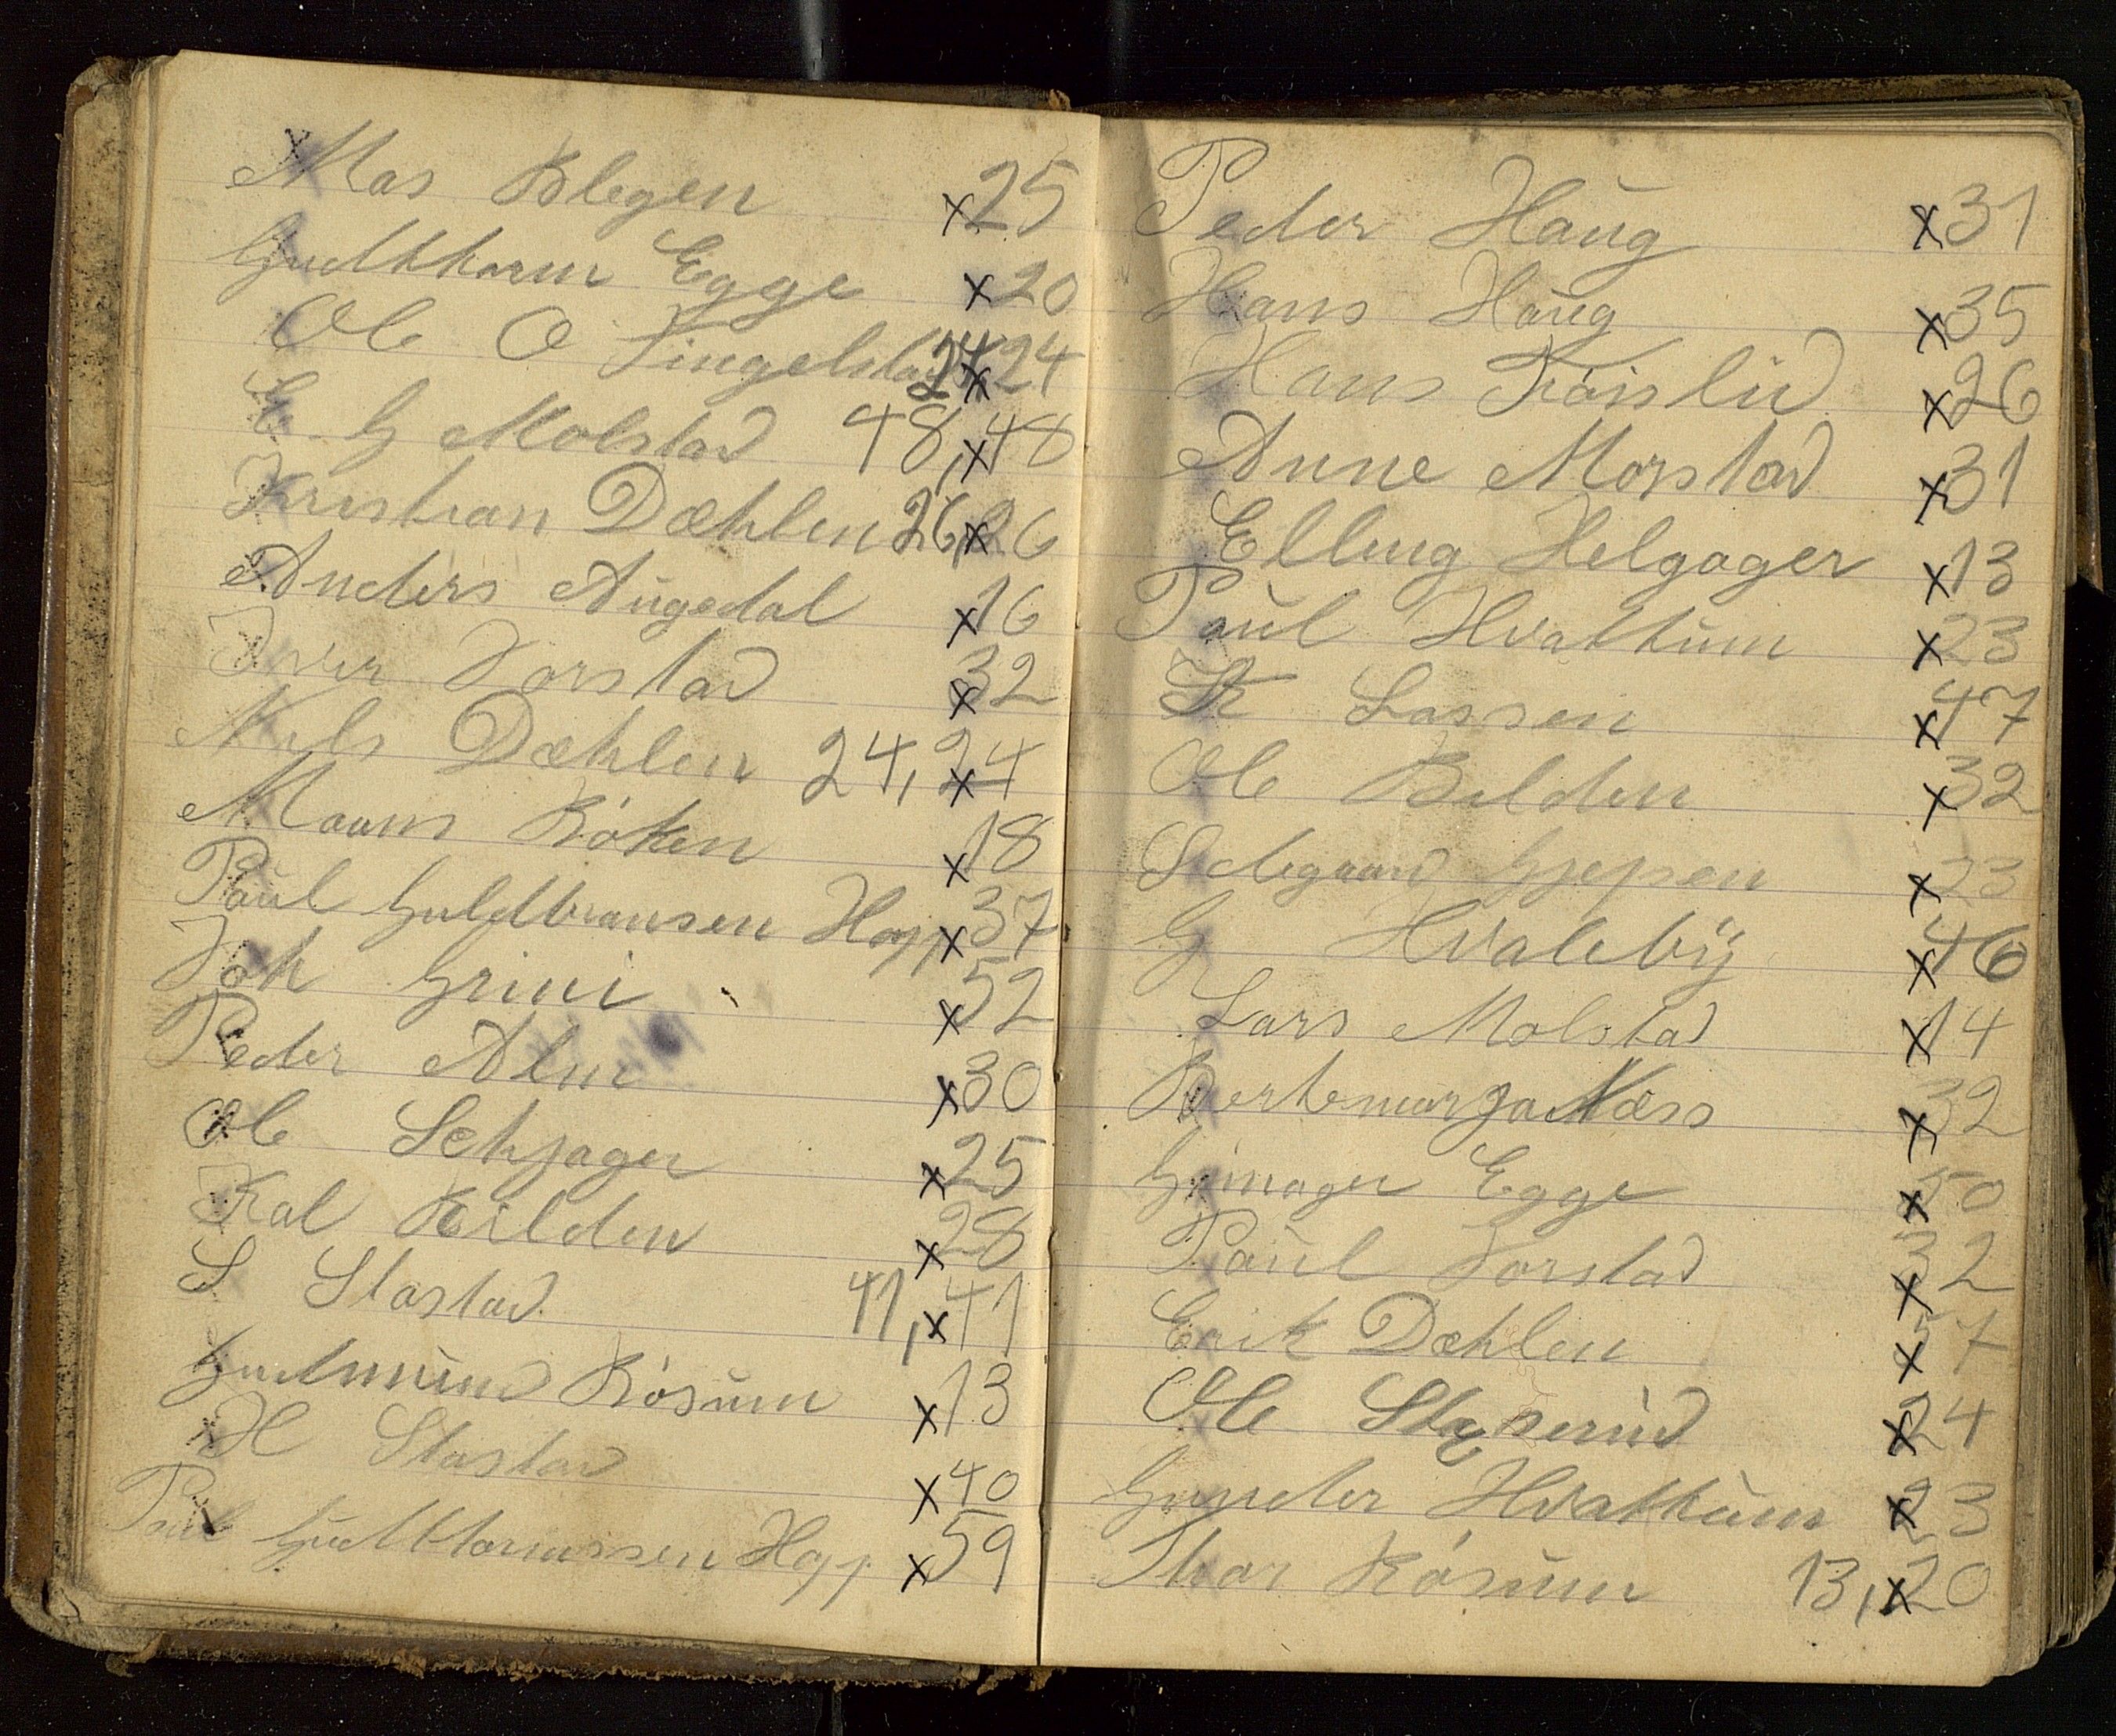 Mas Blegen x25
Gudtkorm Egge x20
Ole O Tingelstad 24 x24
E G Molstad 48, x48
Kristian Dæhlen 26, x26
Anders Augedal x16
Iver Jorstad x32
Nils Dæhlen 24, x24
Maans Röken x18
Paul Guldbransen Hagg x37
Joh Grini x52
Peder Alm x30
Ole Sehjager x25
Kal Kilden x28
S Stastad 41, x41
Gudmund Rösum x13
H Stastad x40
Paul Gudttormssen Hagg x59
Peder Haug x31
Hans Haug x35
Hans x26
Anne Morstad x31
Elling Helgager x13
Paul Hvattum x23
K Lassen x47
Ole Bilden x32
Gjepsen x23
G Hvaleby x46
Lars Molstad x14
Næss x32
Grimager Egge x50
Paul Jorstad x32
Erik Dæhlen x 7
Ole x24
Gunder Hvattum x23
Thor Rösum 13, x20